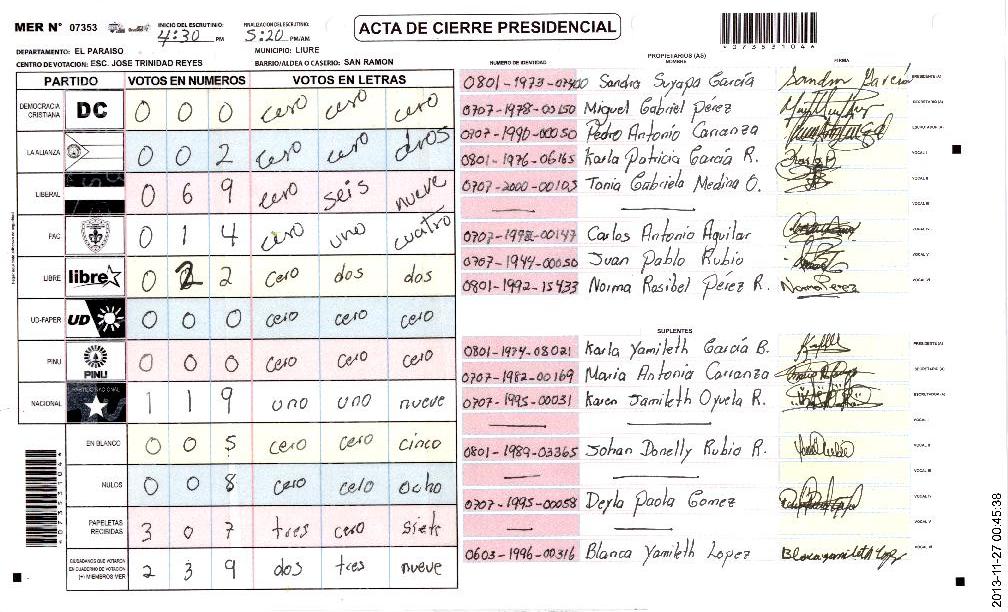 MER N° 07353 INICIO DEL ESCRUTINIO: 4:30 PM FINALIZACION ESCRUTINIO: 5:20 PM/AM
ACTA DE CIERRE PRESIDENCIAL
07353104
DEPARTAMENTO: EL PARAISO MUNICIPIO: LIURE
CENTRO DE VOTACION: ESC. JOSE TRINIDAD REYES BARRIO/ALDEA O CASERIO: SAN RAMON
PARTIDO VOTOS EN NUMEROS VOTOS EN LETRAS
DEMOCRACIA CRISTIANA DC 0 0 0 cero cero cero
LA ALIANZA 0 0 2 cero cero dos
LIBERAL 0 6 9 cero seis nueve
PAC 0 1 4 cero uno cuatro
LIBRE libre 0 2 2 cero dos dos
UD-FAPER UD 0 0 0 cero cero cero
PINU PINU 0 0 0 cero cero cero
NACIONAL 1 1 9 uno uno nueve
EN BLANCO 0 0 5 cero cero cinco
NULOS 0 0 8 cero cero ocho
PAPELETAS RECIBIDAS 3 0 7 tres cero siete
CIUDADANOS QUE VOTARON EN CUADERNO DE VOTACION (+) MIEMBROS MER 2 3 9 dos tres nueve
NUMERO DE IDENTIDAD PROPIETARIOS (AS) NOMBRE FIRMA
0801-1973-07400 Sandra Suyapa García Sandra García PRESIDENTE (A)
0707-1978-00150 Miguel Gabriel Pérez SECRETARIO (A)
0707-1990-00050 Pedro Antonio Carranza ESCRUTADOR (A)
0801-1976-06165 Karla Patricia García R. VOCAL I
0707-2000-00103 Tania Gabriela Medina O. VOCAL II
VOCAL III
0707-1992-00147 Carlos Antonio Aguilar VOCAL IV
0707-1944-00050 Juan Pablo Rubio VOCAL V
0801-1992-15433 Norma Rosibel Pérez R. Norma Perez VOCAL VI
SUPLENTES
0801-1974-08021 Karla Yamileth García B. PRESIDENTE (A)
0707-1982-00169 Maria Antonia Carranza SECRETARIO (A)
0707-1995-00031 Karen Jamileth Oyuela R. ESCRUTADOR (A)
VOCAL I
0801-1989-03365 Johan Donelly Rubio R. VOCAL II
VOCAL III
0707-1995-00058 Deyla Paola Gomez VOCAL IV
VOCAL V
0603-1996-00316 Blanca Yamileth Lopez Blanca yamileth Lopez VOCAL VI
2013-11-27 00:45:38